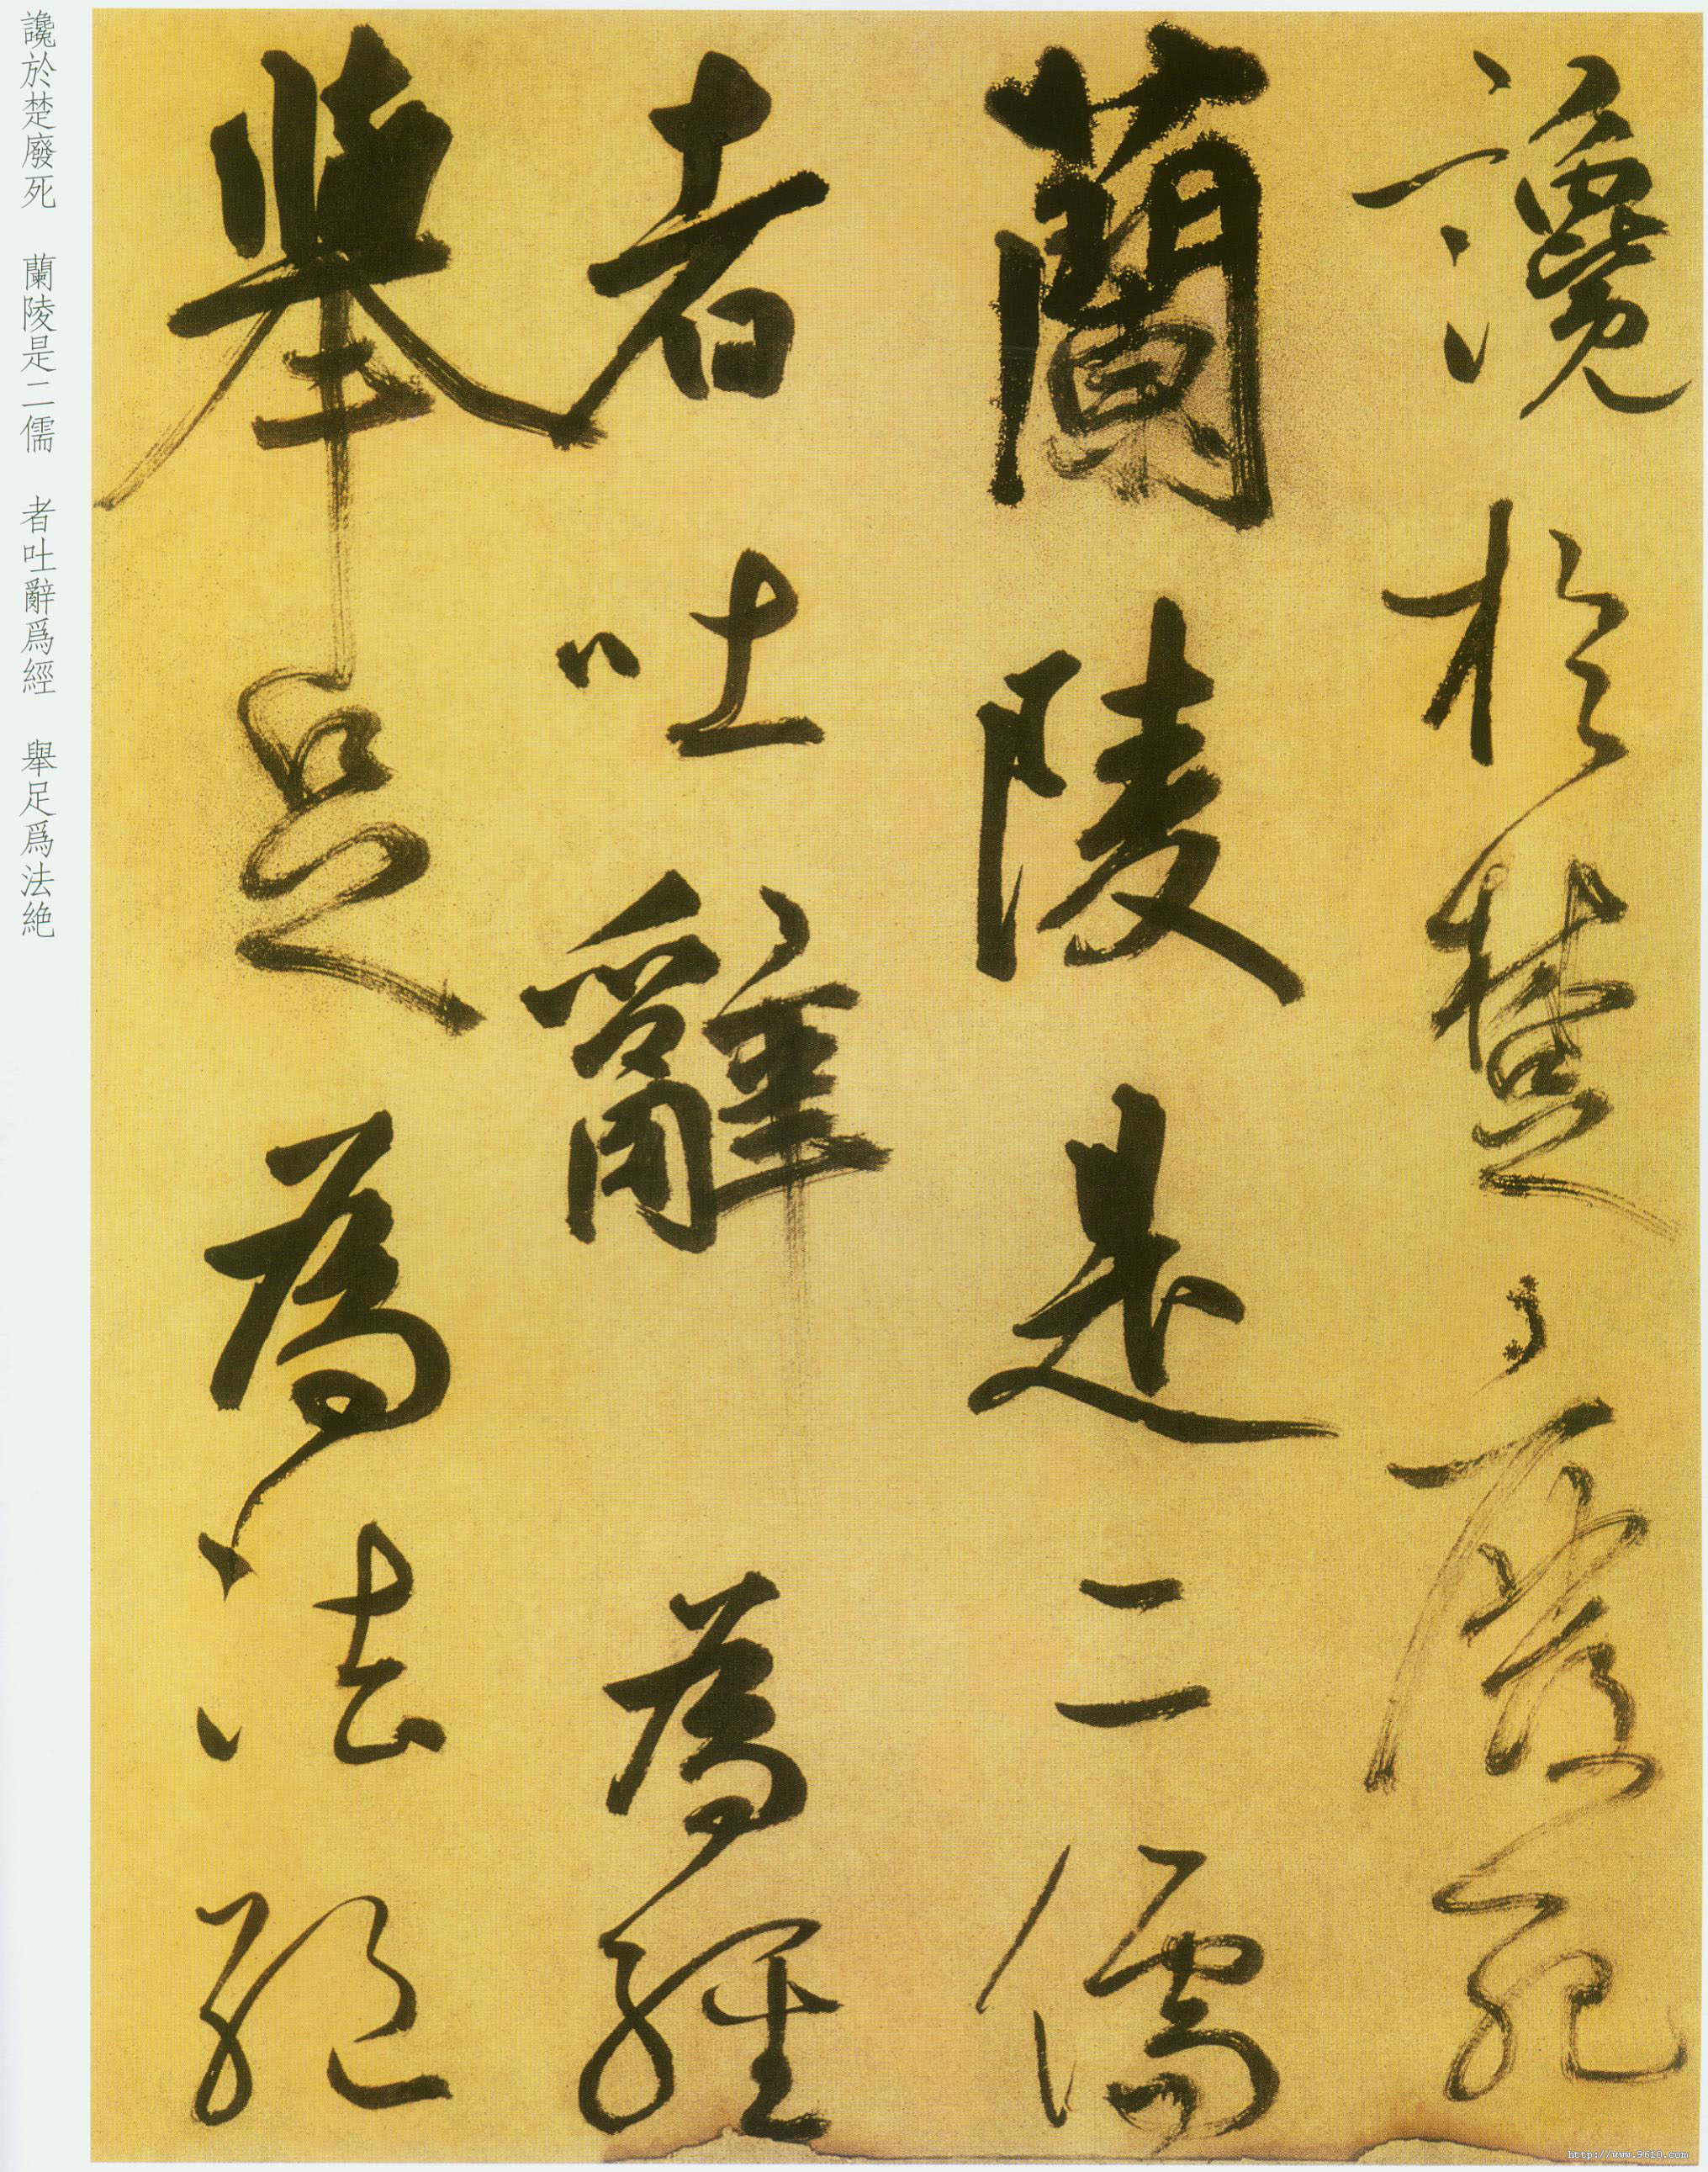 讒於楚〻廢死
蘭陵是二儒
者吐辭為經
舉足為法絕
讒於楚廢死 蘭陵是二儒 者吐辭爲經 舉足爲法絶
http://www.9610.com